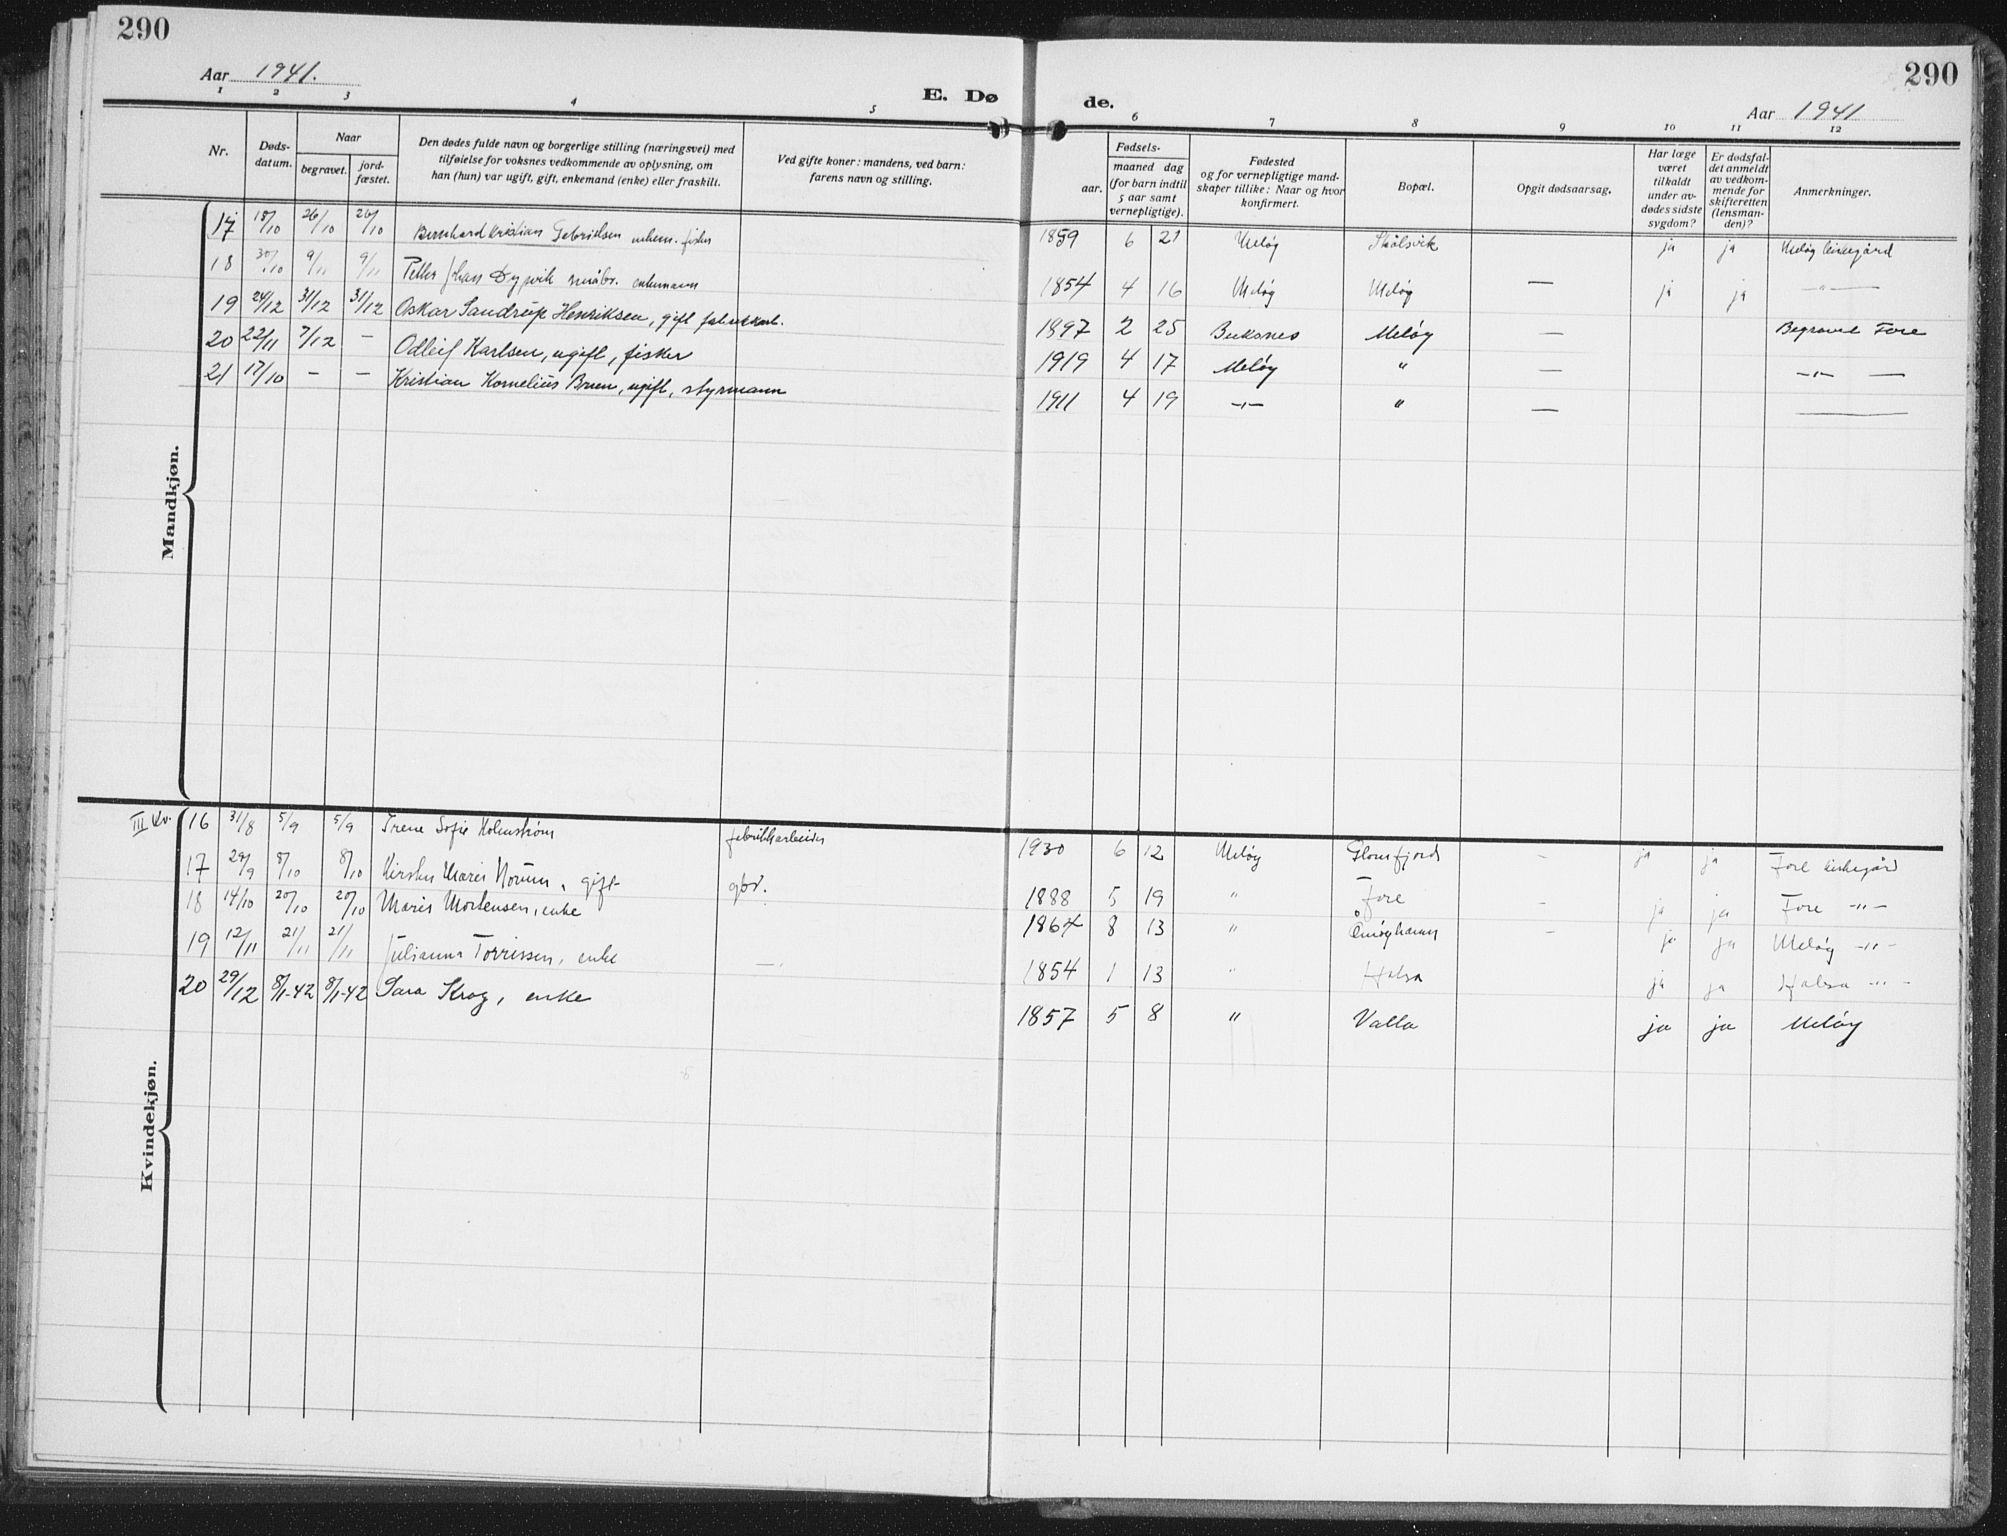 290
Aar 1941.
E. Dø
de.
Aar 1941
290
1 2 3 4 5 6 7 8 9 10 11 12
Nr.
Døds-
datum.
Naar
begravet.
jord-
fæstet.
Den dødes fulde navn og borgerlige stilling (næringsvei) med
tilføielse for voksnes vedkommende av oplysning, om
han (hun) var ugift, gift, enkemand (enke) eller fraskilt.
Ved gifte koner: mandens, ved barn:
farens navn og stilling.
Fødsels-
aar.
maaned dag
(for barn indtil
5 aar samt
vernepligtige).
Fødested
og for vernepligtige mand-
skaper tillike: Naar og hvor
konfirmert.
Bopæl.
Opgit dødsaarsag.
Har læge
været
tilkaldt
under av-
dødes sidste
sygdom?
Er dødsfal-
det anmeldt
av vedkom-
mende for
skifteretten
(lensman-
den)?
Anmerkninger.
Mandkjøn.
17 18/10 26/10 26/10 Bernhard Kristian Gabrielsen enkem. fisker 1859 6 21 Meløy Skålsvik ja ja Meløy kirkegård
18 30/10 9/11 9/11 Petter Johan Dypvik småbr. enkemann 1854 4 16 Meløy Meløy — ja ja —"—
19 24/12 31/12 31/12 Oskar Sandrup Henriksen, gift 1897 2 25 Buksnes Meløy — Begravet Fore
20 22/11 7/12 — Odleif Karlsen, ugift, fisker 1919 4 17 Meløy " — —"— —
21 17/10 — — Kristian Kornelius Bruun, ugift, styrmann 1911 4 19 —"— " — —
Kvindekjøn.
III Kv. 16 31/8 5/9 5/9 Irene Sofie Holmstrøm fabrikkarbeider 1930 6 12 Meløy Glomfjord — ja ja Fore kirkegård
17 29/9 8/10 8/10 Kirsten Marie Norum, gift gbr. 1888 5 19 " Fore — ja ja Fore —"—
18 14/10 20/10 20/10 Marie Mortensen, enke 1864 8 13 " Ørnøyhavn — ja ja Meløy —"—
19 12/11 21/11 21/11 Julianna Torrissen, enke — 1854 1 13 " Halsa ja ja Halsa —"—
20 29/12 8/1-42 8/1-42 Sara Krog, enke 1857 5 8 " Valla ja ja Meløy